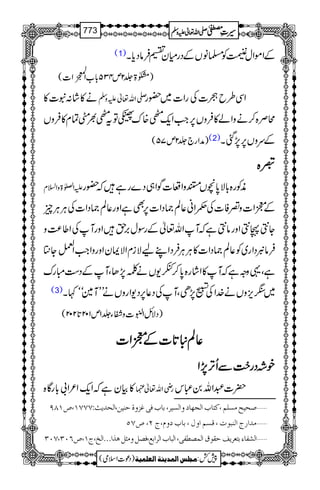 سیرتِ مصطفیٰ صلی اللہ تعالیٰ علیہ وسلم 773
کے اموالِ غنیمت کو مسلمانوں کے درمیان تقسیم فرما دیا۔ (1)
(مشکوٰۃ جلد۲ ص۵۳۴ باب المعجزات)
اسی طرح ہجرت کی رات میں حضور صلی اللہ تعالیٰ علیہ وسلم نے کاشانۂ نبوت کا
محاصرہ کرنے والے کافروں پر جب ایک مٹھی خاک پھینکی تو یہ مٹھی بھر مٹی تمام کافروں
کے سروں پر پڑ گئی۔ (2) (مدارج جلد۲ ص۵۷)
تبصرہ
مذکورہ بالا پانچوں مستند واقعات گواہی دے رہے ہیں کہ حضور علیہ الصلوٰۃ والسلام
کے معجزانہ تصرفات کی حکمرانی عالم جمادات پر بھی ہے اور عالم جمادات کی ہر ہر چیز
جانتی پہچانتی اور مانتی ہے کہ آپ اللہ تعالیٰ کے رسول برحق ہیں اور آپ کی اطاعت و
فرمانبرداری کو عالم جمادات کا ہر ہر فرد اپنے لیے لازم الایمان اور واجب العمل جانتا
ہے، یہی وجہ ہے کہ آپ کا اشارہ پا کر کنکریوں نے کلمہ پڑھا، آپ کے دست مبارک
میں سنگریزوں نے خدا کی تسبیح پڑھی، آپ کی دعا پر دیواروں نے ’’آمین‘‘ کہا۔ (3)
(دلائل النبوت وشفاء جلد۱ ص۲۰۱ تا ۲۰۲)
عالم نباتات کے معجزات
خوشہ درخت سے اُتر پڑا
حضرت عبداللہ بن عباس رضی اللہ تعالیٰ عنہما کا بیان ہے کہ ایک اعرابی بارگاہ
……صحیح مسلم، کتاب الجهاد والسیر، باب فی غزوة حنین، الحدیث: ۱۷۷۷، ص۹۸۱
……مدارج النبوت، قسم اول، باب دوم، ج۲، ص۵۷
……الشفاء بتعریف حقوق المصطفی، الباب الرابع، فصل ومثل هذا...الخ، ج۱، ص۳۰۶، ۳۰۷
پیش کش: مجلس المدینة العلمیة (دعوتِ اسلامی)